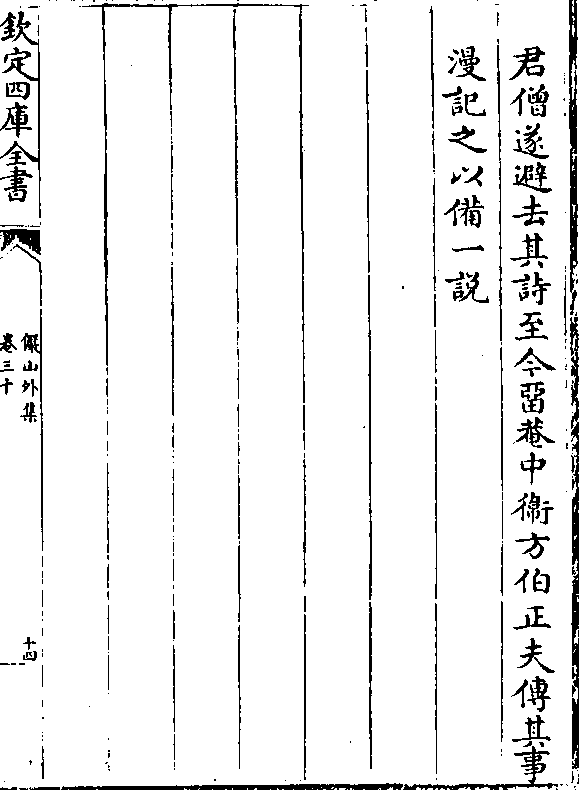 君僧遂避去其詩至今畱菴中衛方伯正夫傳其事
漫記之以備一説
欽定四庫全書
儼山外集
卷三十
十四